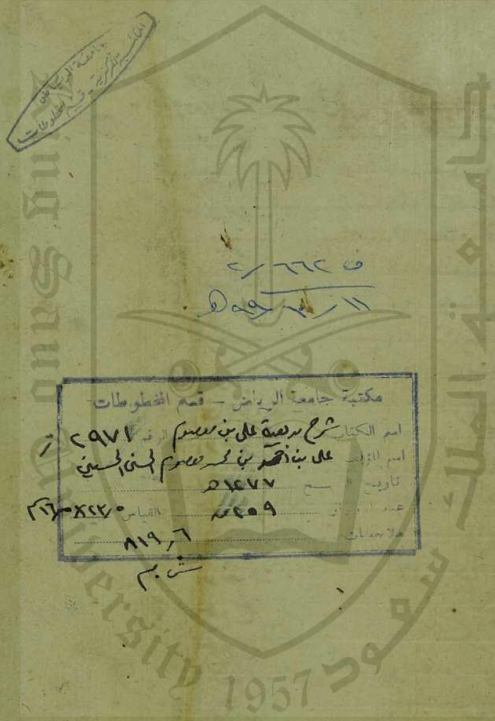 جامعة الرياض
المكتبة المركزية - قسم المخطوطات
ف ٦٦٢ / ٢
مكتبة جامعة الرياض - قسم المخطوطات
اسم الكتاب شرح بديعية علي بن معصوم الرقم ٢٩٧١
اسم المؤلف علي بن أحمد بن محمد معصوم الحسني الحسيني
تاريخ النسخ ١٢٧٧ هـ
عدد الأوراق ٢٥٩ القياس
ملاحظات ٨١٩,٦
جامعة الملك سعود
King Saud University
1957